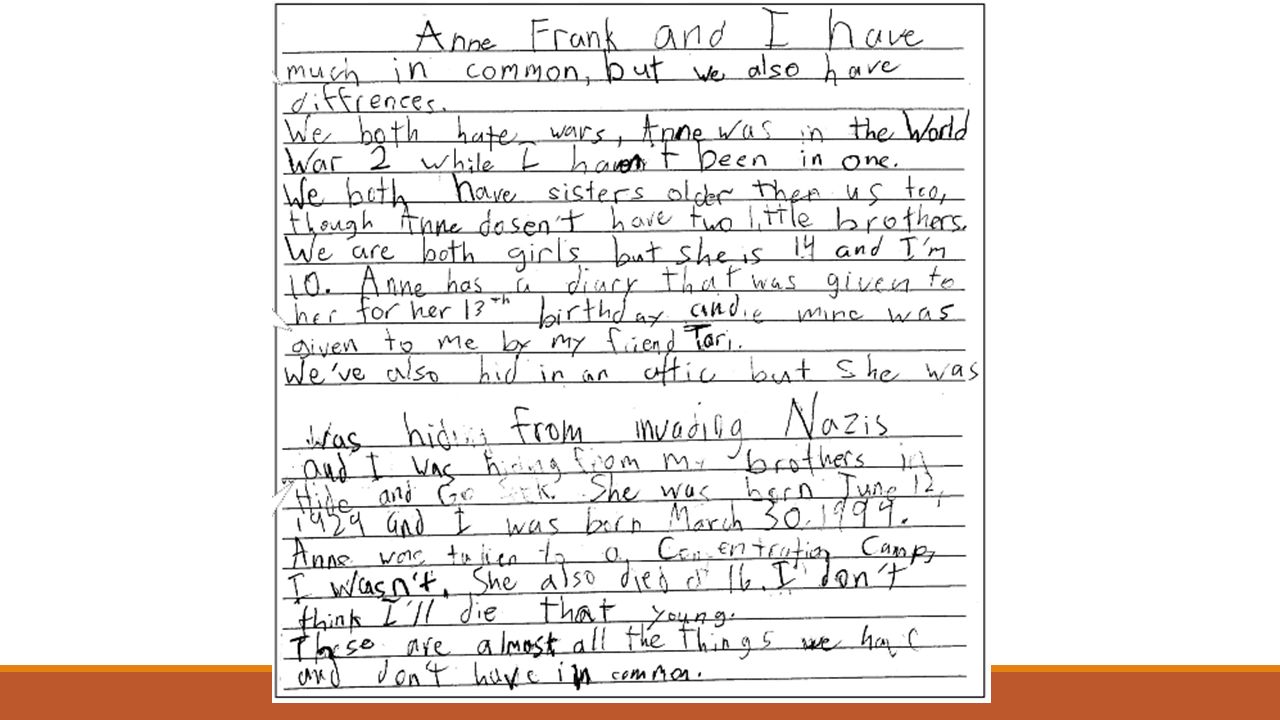 Anne Frank and I have
much in common, but we also have
diffrences.
We both hate wars, Anne was in the World
War 2 while I haven't been in one.
We both have sisters older then us too,
though Anne dosen't have two little brothers.
We are both girls but she is 14 and I'm
10. Anne has a diary that was given to
her for her 13th birthday and mine was
given to me by my friend Tori.
We've also hid in an attic but she was
was hiding from invading Nazis
and I was hiding from my brothers in
Hide and Go Seek. She was born June 12,
1929 and I was born March 30, 1999.
Anne was taken to a Concentration Camp,
I wasn't. She also died at 16. I don't
think I'll die that young.
These are almost all the things we have
and don't have in common.